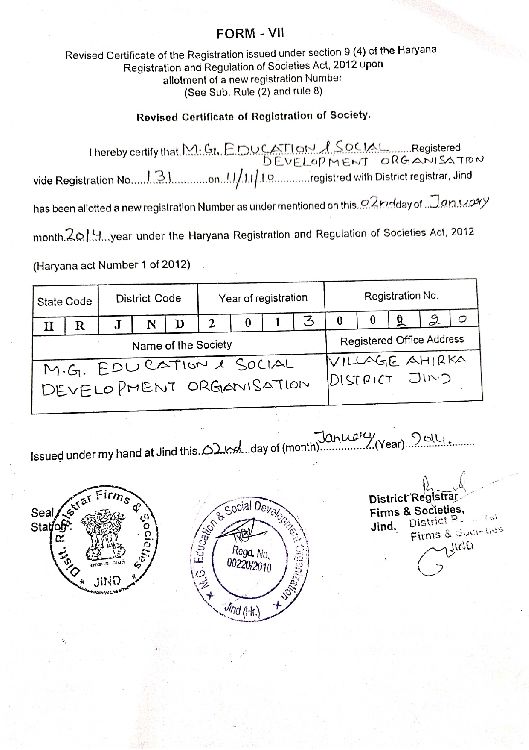 FORM - VII
Revised Certificate of the Registration issued under section 9 (4) of the Haryana
Registration and Regulation of Societies Act, 2012 upon
allotment of a new registration Number
(See Sub. Rule (2) and rule 8)
Revised Certificate of Registration of Society.
I hereby certify that M.G. EDUCATION & SOCIAL ........Registered
DEVELOPMENT ORGANISATION
vide Registration No....131............on..11/11/10............registered with District registrar, Jind
has been allotted a new registration Number as under mentioned on this 02nd day of..January
month.2014...year under the Haryana Registration and Regulation of Societies Act, 2012
(Haryana act Number 1 of 2012)
State Code District Code Year of registration Registration No.
H R J N D 2 0 1 3 0 0 2 2 0
Name of the Society Registered Office Address
M.G. EDUCATION & SOCIAL VILLAGE AHIRKA
DEVELOPMENT ORGANISATION DISTRICT JIND
Issued under my hand at Jind this..02nd...day of (month) January (Year)
District Registrar
Firms & Societies,
Jind.
District
Firms & Societies
Jind
Seal
Station
Distt. Registrar Firms & Societies
JIND
M.G. Education & Social Development Organisation
Regd. No.
00220/2010
Jind (Hr.)